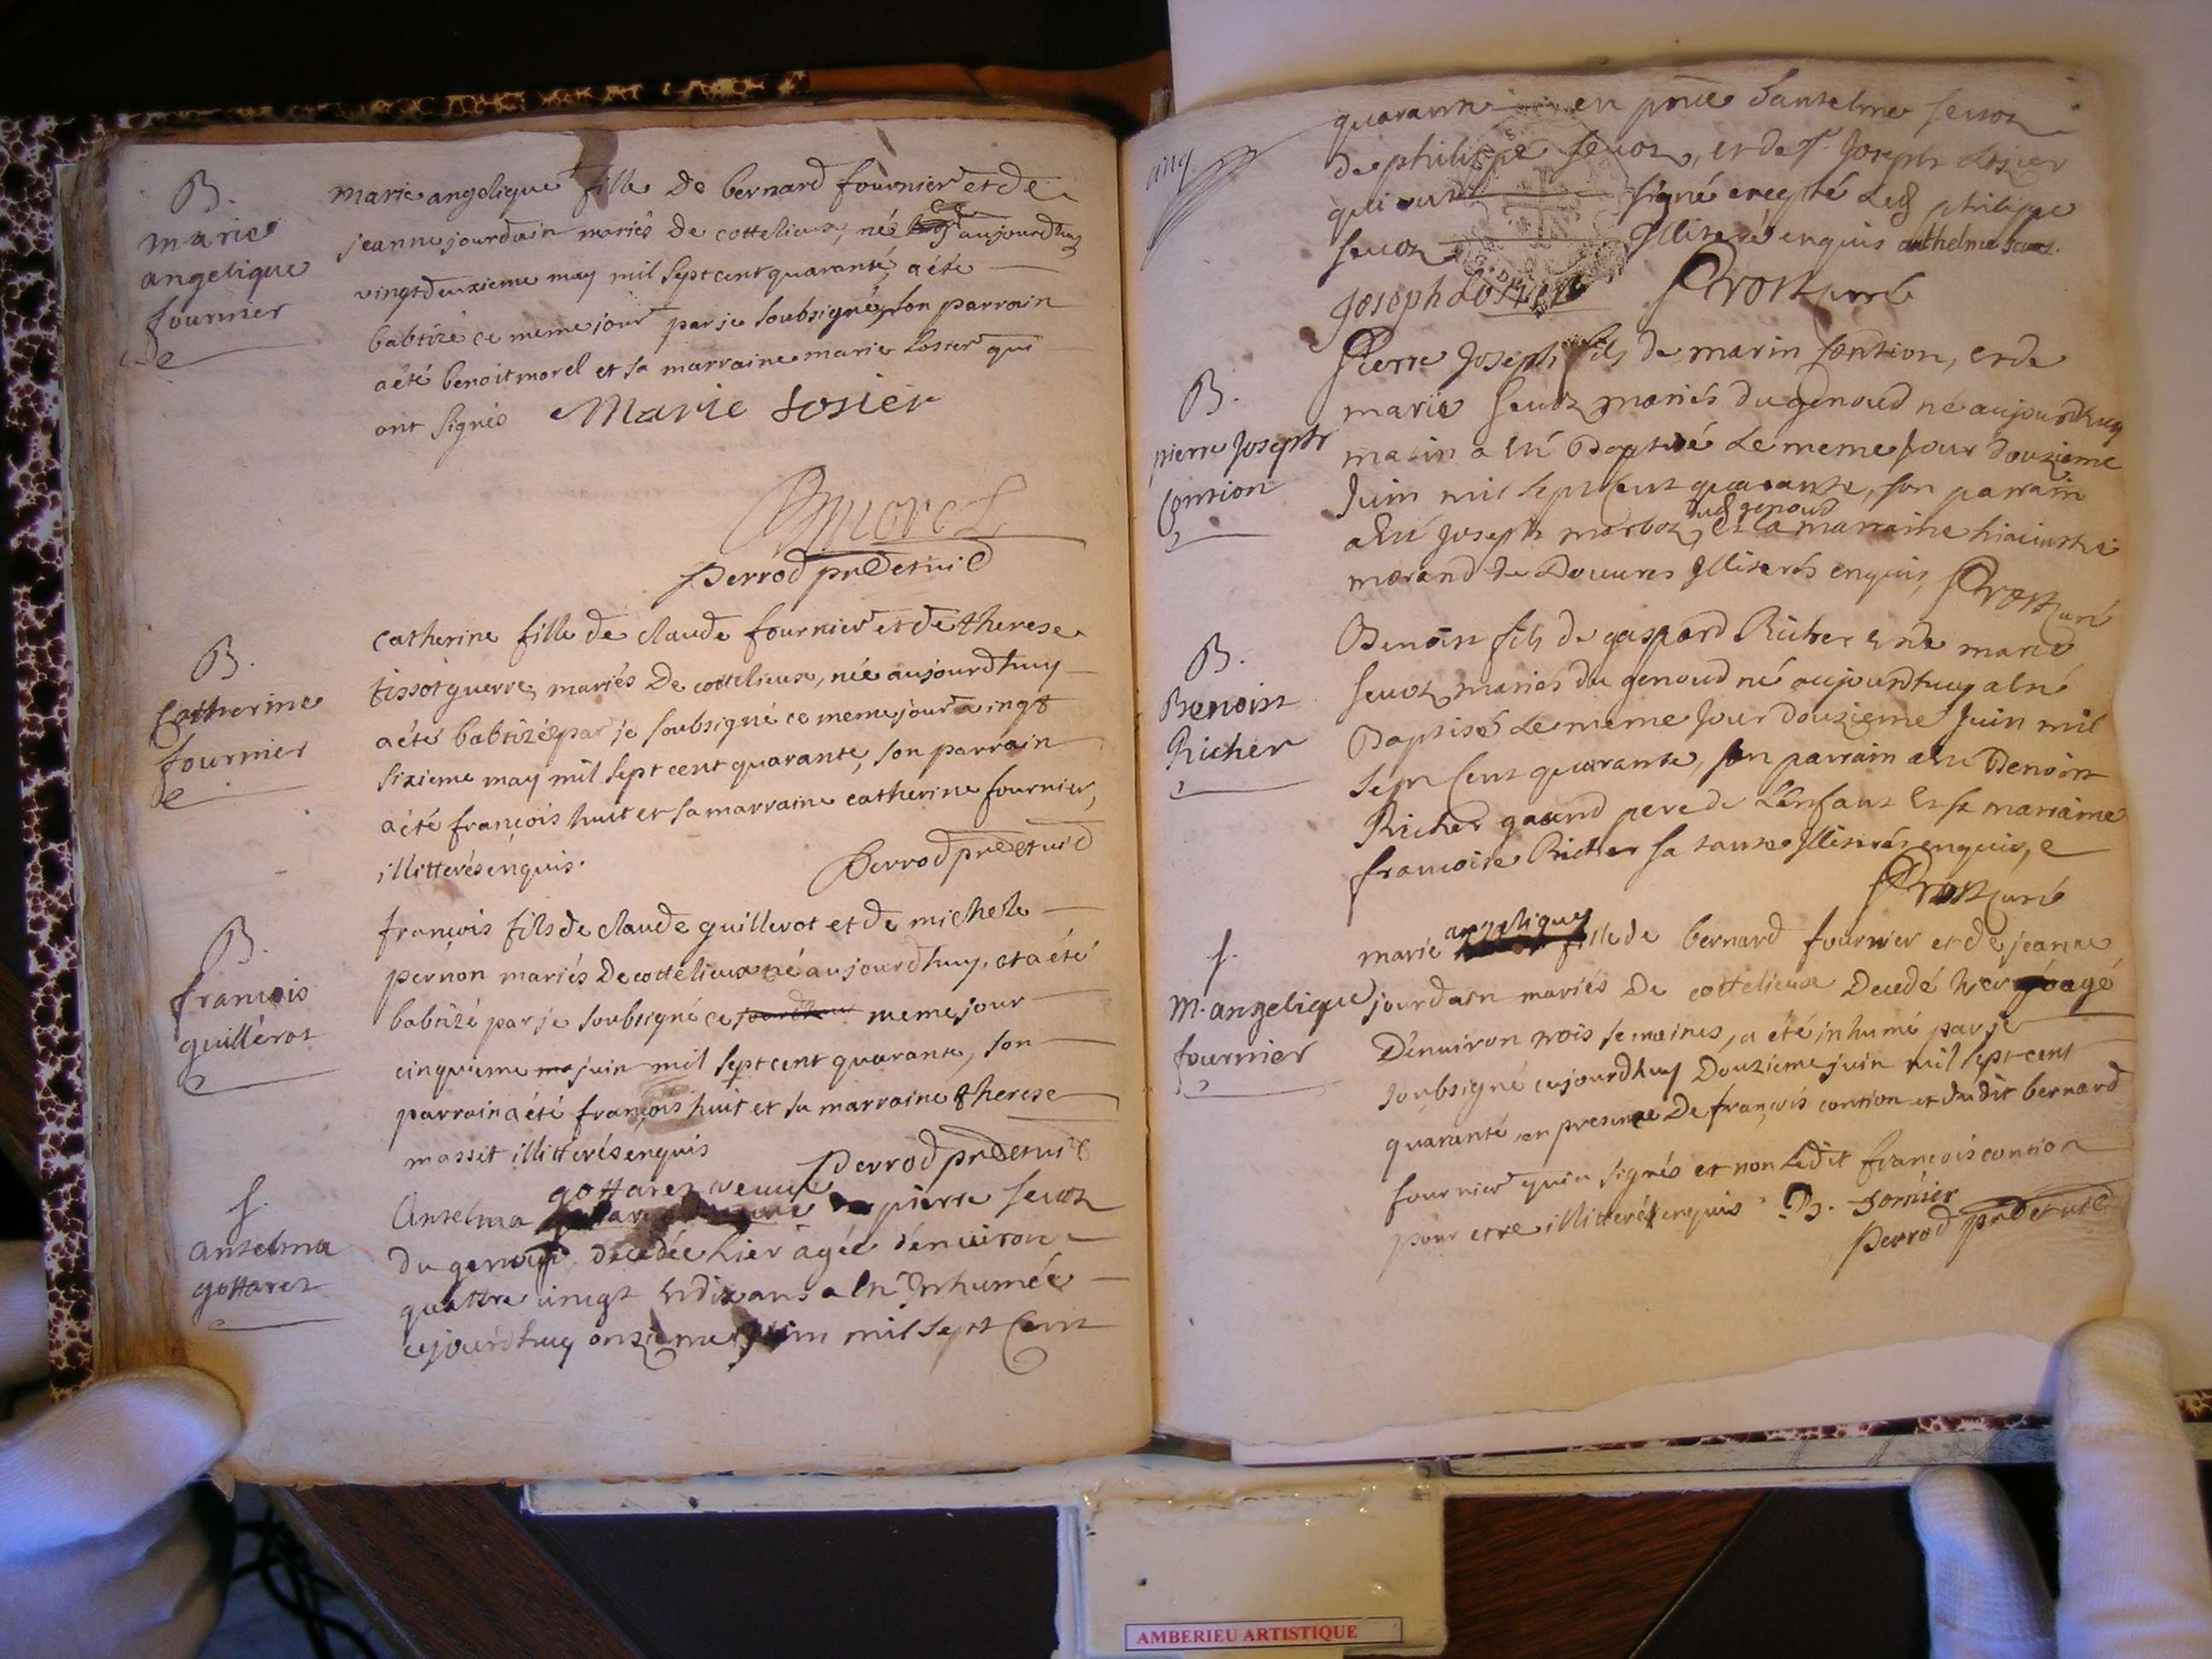 B.
marie
angelique
fournier
marie angelique fille De bernard fournier et de
jeanne jourdain mariés De cottelieux, né ce aujourdhuy
vingtdeuxieme may mil sept cent quarante, a été
babtizé ce meme jour par je soubsigné, son parrain
a été benoit morel et sa marraine marie Losier qui
ont signés Marie Losier
Bmorel
Perrod prêe et vic
B.
Catherine
fournier
catherine fille de claude fournier et de therese
tissot guerre, mariés De cottelieux, née aujourdhuy
a été babtizée par je soubsigné ce meme jour vingt
sixieme may mil sept cent quarante, son parrain
a été françois huit et sa marraine catherine fournier,
illitterés enquis.
Perrod prêe et vic
B.
francois
guillerot
françois fils de claude guillerot et de michele
pernon mariés De cottelieux né aujourdhuy, et a été
babtizé par je soubsigné ce jourdhuy meme jour
cinquieme ma juin mil sept cent quarante, son
parrain a été françois huit et sa marraine therese
massit illitterés enquis
Perrod prêe et vic
f.
anselma
gottarez
gottarez veuve
Anselma pierre seuoz
du genoud decedée hier agée denuiron
quattre uingt et dix ans a été Inhumée
cejourdhuy onzieme juin mil sept Cent
cinq
quarante en pnce d'anselme seuoz
de philippe seuoz, et de sr. Joseph Losier
qui ont signé excepté led philippe
seuoz Illiteré enquis anthelme seuoz.
Joseph Losier Prost curé
B.
pierre Joseph
Contion
Pierre Joseph fils de marin Contion, et de
marie seuoz mariés du genoud né aujourdhuy
matin a été Baptisé Le meme Jour douzieme
Juin mil sept Cent quarante, son parrain
dud genoud
a été Joseph marboz, et la marraine hiacinthe
morand de Douures Illiterés enquis, Prost curé
B.
Benoist
Richer
Benoist fils de gaspard Richer et de marie
seuoz mariés du genoud né aujourdhuy a été
Baptisé Le meme Jour douzieme Juin mil
sept Cent quarante, son parrain a été Benoist
Richer grand pere de L'enfant et sa marraine
francoise Richer sa tante Illiterés enquis,
Prost curé
f.
m. angelique
fournier
angelique
marie fille de bernard fournier et de jeanne
jourdain mariés De cottelieux Decedé hier agé
D'enuiron trois semaines, a été inhumé par je
soubsigné aujourdhuy Douzieme juin mil sept cent
quarante, en presence De françois contion et dudit bernard
fournier qui a signés et non Ledit françois contion
pour etre illitterés enquis B. fornier
Perrod prêe et vic
AMBERIEU ARTISTIQUE